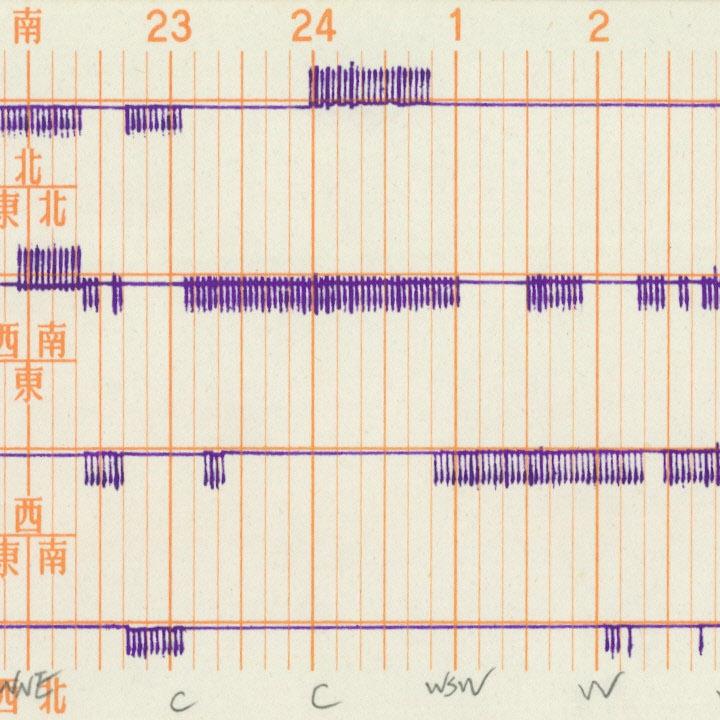 南 23 24 1 2
北
東 北
西 南
東
西
東 南
西 北
NNE C C WSW W